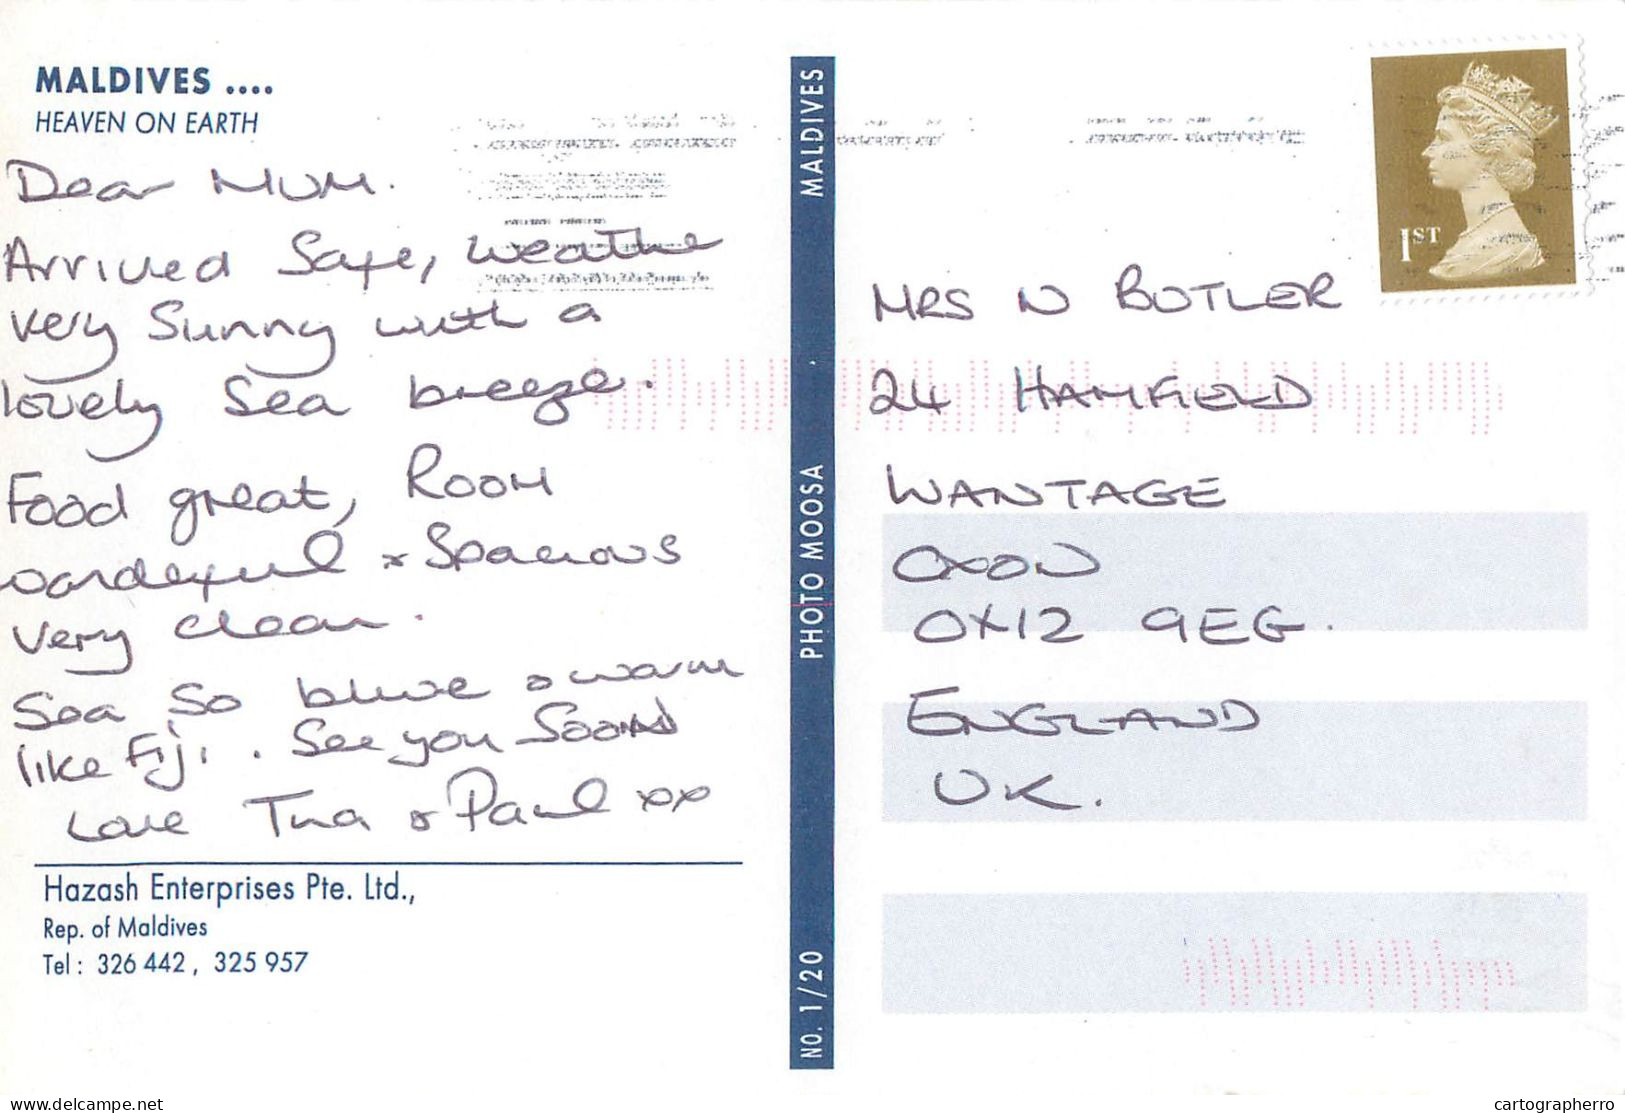 MALDIVES ....
HEAVEN ON EARTH
Dear MUM.
Arrived Safe, weathe
very Sunny with a
lovely Sea breeze.
Food great, ROOM
wonderful & Spacious
very clean.
Sea So blue & warm
like Fiji. See you Soon
Love Tina & Paul xx
Hazash Enterprises Pte. Ltd.,
Rep. of Maldives
Tel : 326 442 , 325 957
NO. 1/20 PHOTO MOOSA MALDIVES
1ST
MRS N BUTLER
24 HAMFIELD
WANTAGE
OXON
OX12 9EG.
ENGLAND
UK.
delcampe.net
cartographerro